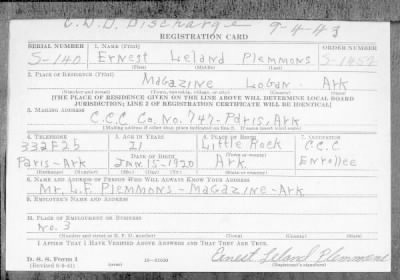 C.D.D Discharge 9-4-43
REGISTRATION CARD
SERIAL NUMBER 1. NAME (Print) ORDER NUMBER
S-140 Ernest Leland Plemmons S-1452
(First) (Middle) (Last)
2. PLACE OF RESIDENCE (Print)
Magazine Logan Ark
(Number and street) (Town, township, village, or city) (County) (State)
[THE PLACE OF RESIDENCE GIVEN ON THE LINE ABOVE WILL DETERMINE LOCAL BOARD
JURISDICTION; LINE 2 OF REGISTRATION CERTIFICATE WILL BE IDENTICAL]
3. MAILING ADDRESS
C.C.C Co. No. 747-Paris, Ark
[Mailing address if other than place indicated on line 2. If same insert word same]
4. TELEPHONE 5. AGE IN YEARS 6. PLACE OF BIRTH 7. OCCUPATION
332F25 21 Little Rock C.C.C
DATE OF BIRTH
Paris-Ark Jan. 15-1920 Ark Enrollee
8. NAME AND ADDRESS OF PERSON WHO WILL ALWAYS KNOW YOUR ADDRESS
Mr. L.F Plemmons-Magazine-Ark
9. EMPLOYER'S NAME AND ADDRESS
10. PLACE OF EMPLOYMENT OR BUSINESS
No. 3
(Number and street or R. F. D. number) (Town) (County) (State)
I AFFIRM THAT I HAVE VERIFIED ABOVE ANSWERS AND THAT THEY ARE TRUE.
D. S. S. Form 1 Ernest Leland Plemmons
(Registrant's signature)